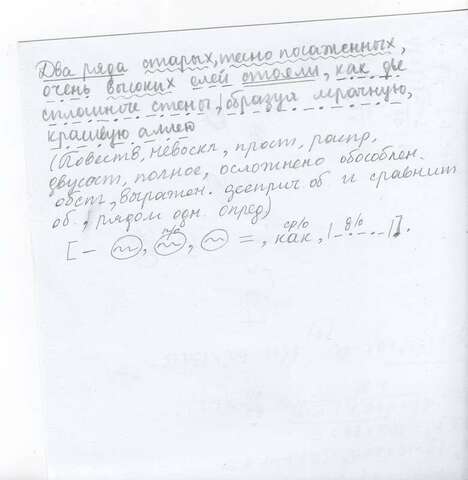 Два ряда старых, тесно посаженных,
очень высоких елей стояли, как две
сплошные стены, образуя мрачную,
красивую аллею
(Повеств, невоскл, прост, распр,
двусост, полное, осложнено обособлен.
обст, выражен. дееприч. об. и сравнит
об., рядом одн. опред)
ср/о д/о
[ – , , = , как, |_._._|].